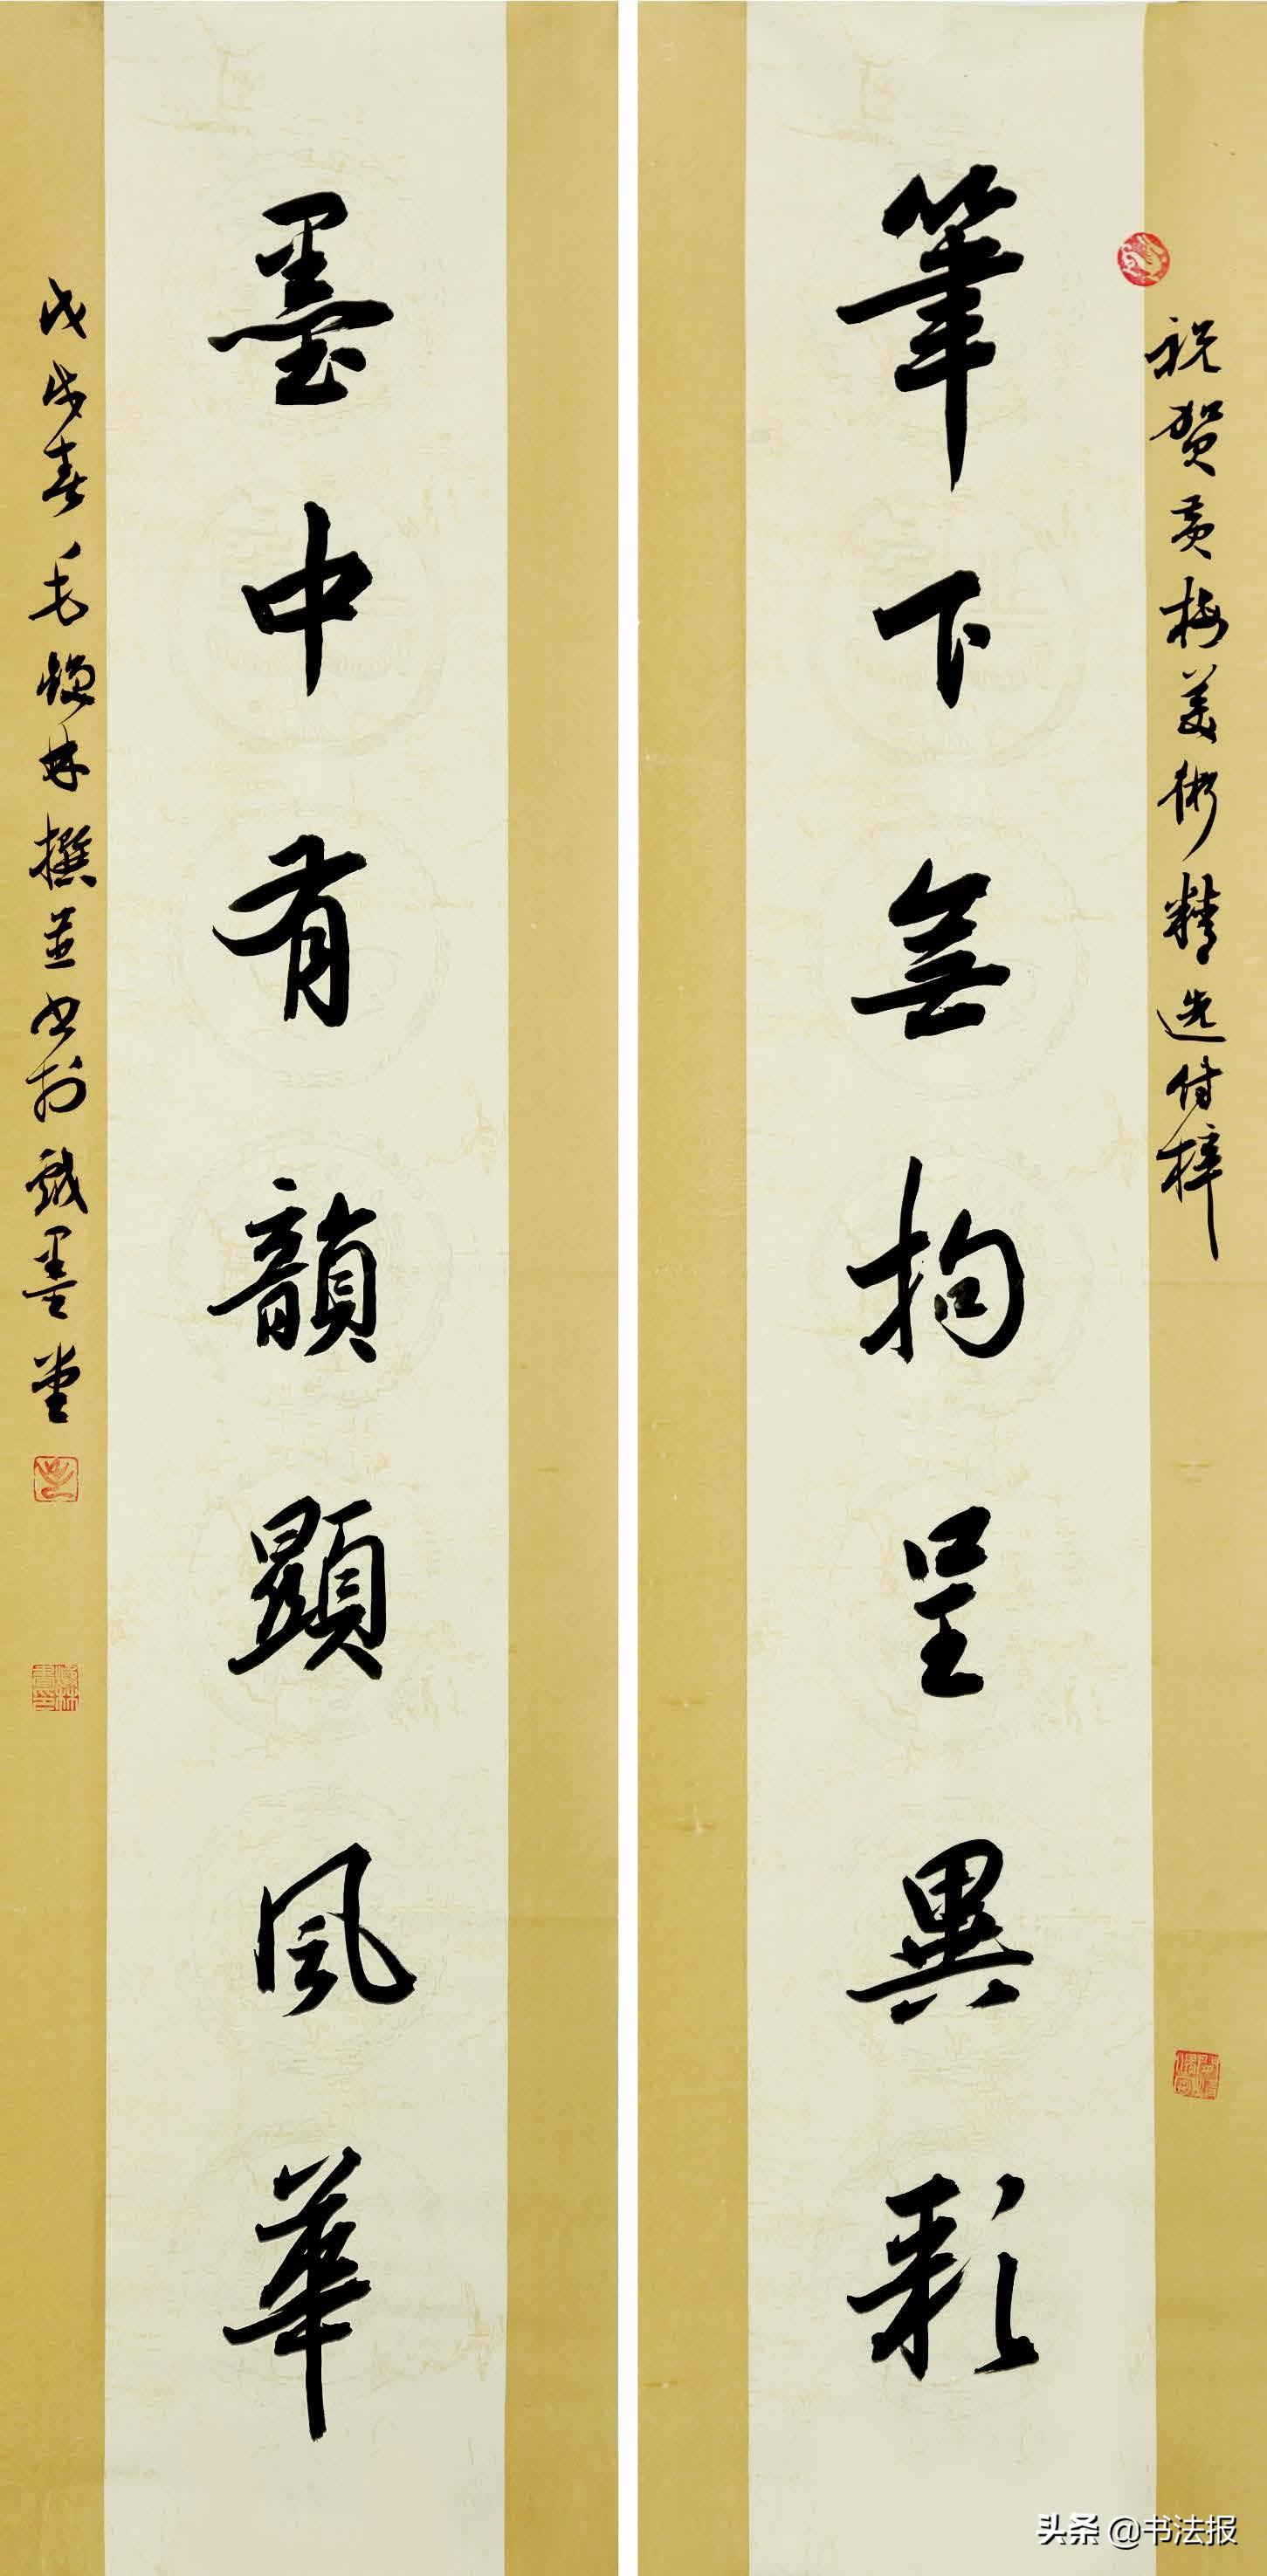 祝贺黄梅美术精选付梓
筆下無拘呈異彩
墨中有韻顯風華
戊戌春毛焕林撰並书於戲墨堂
头条 @书法报